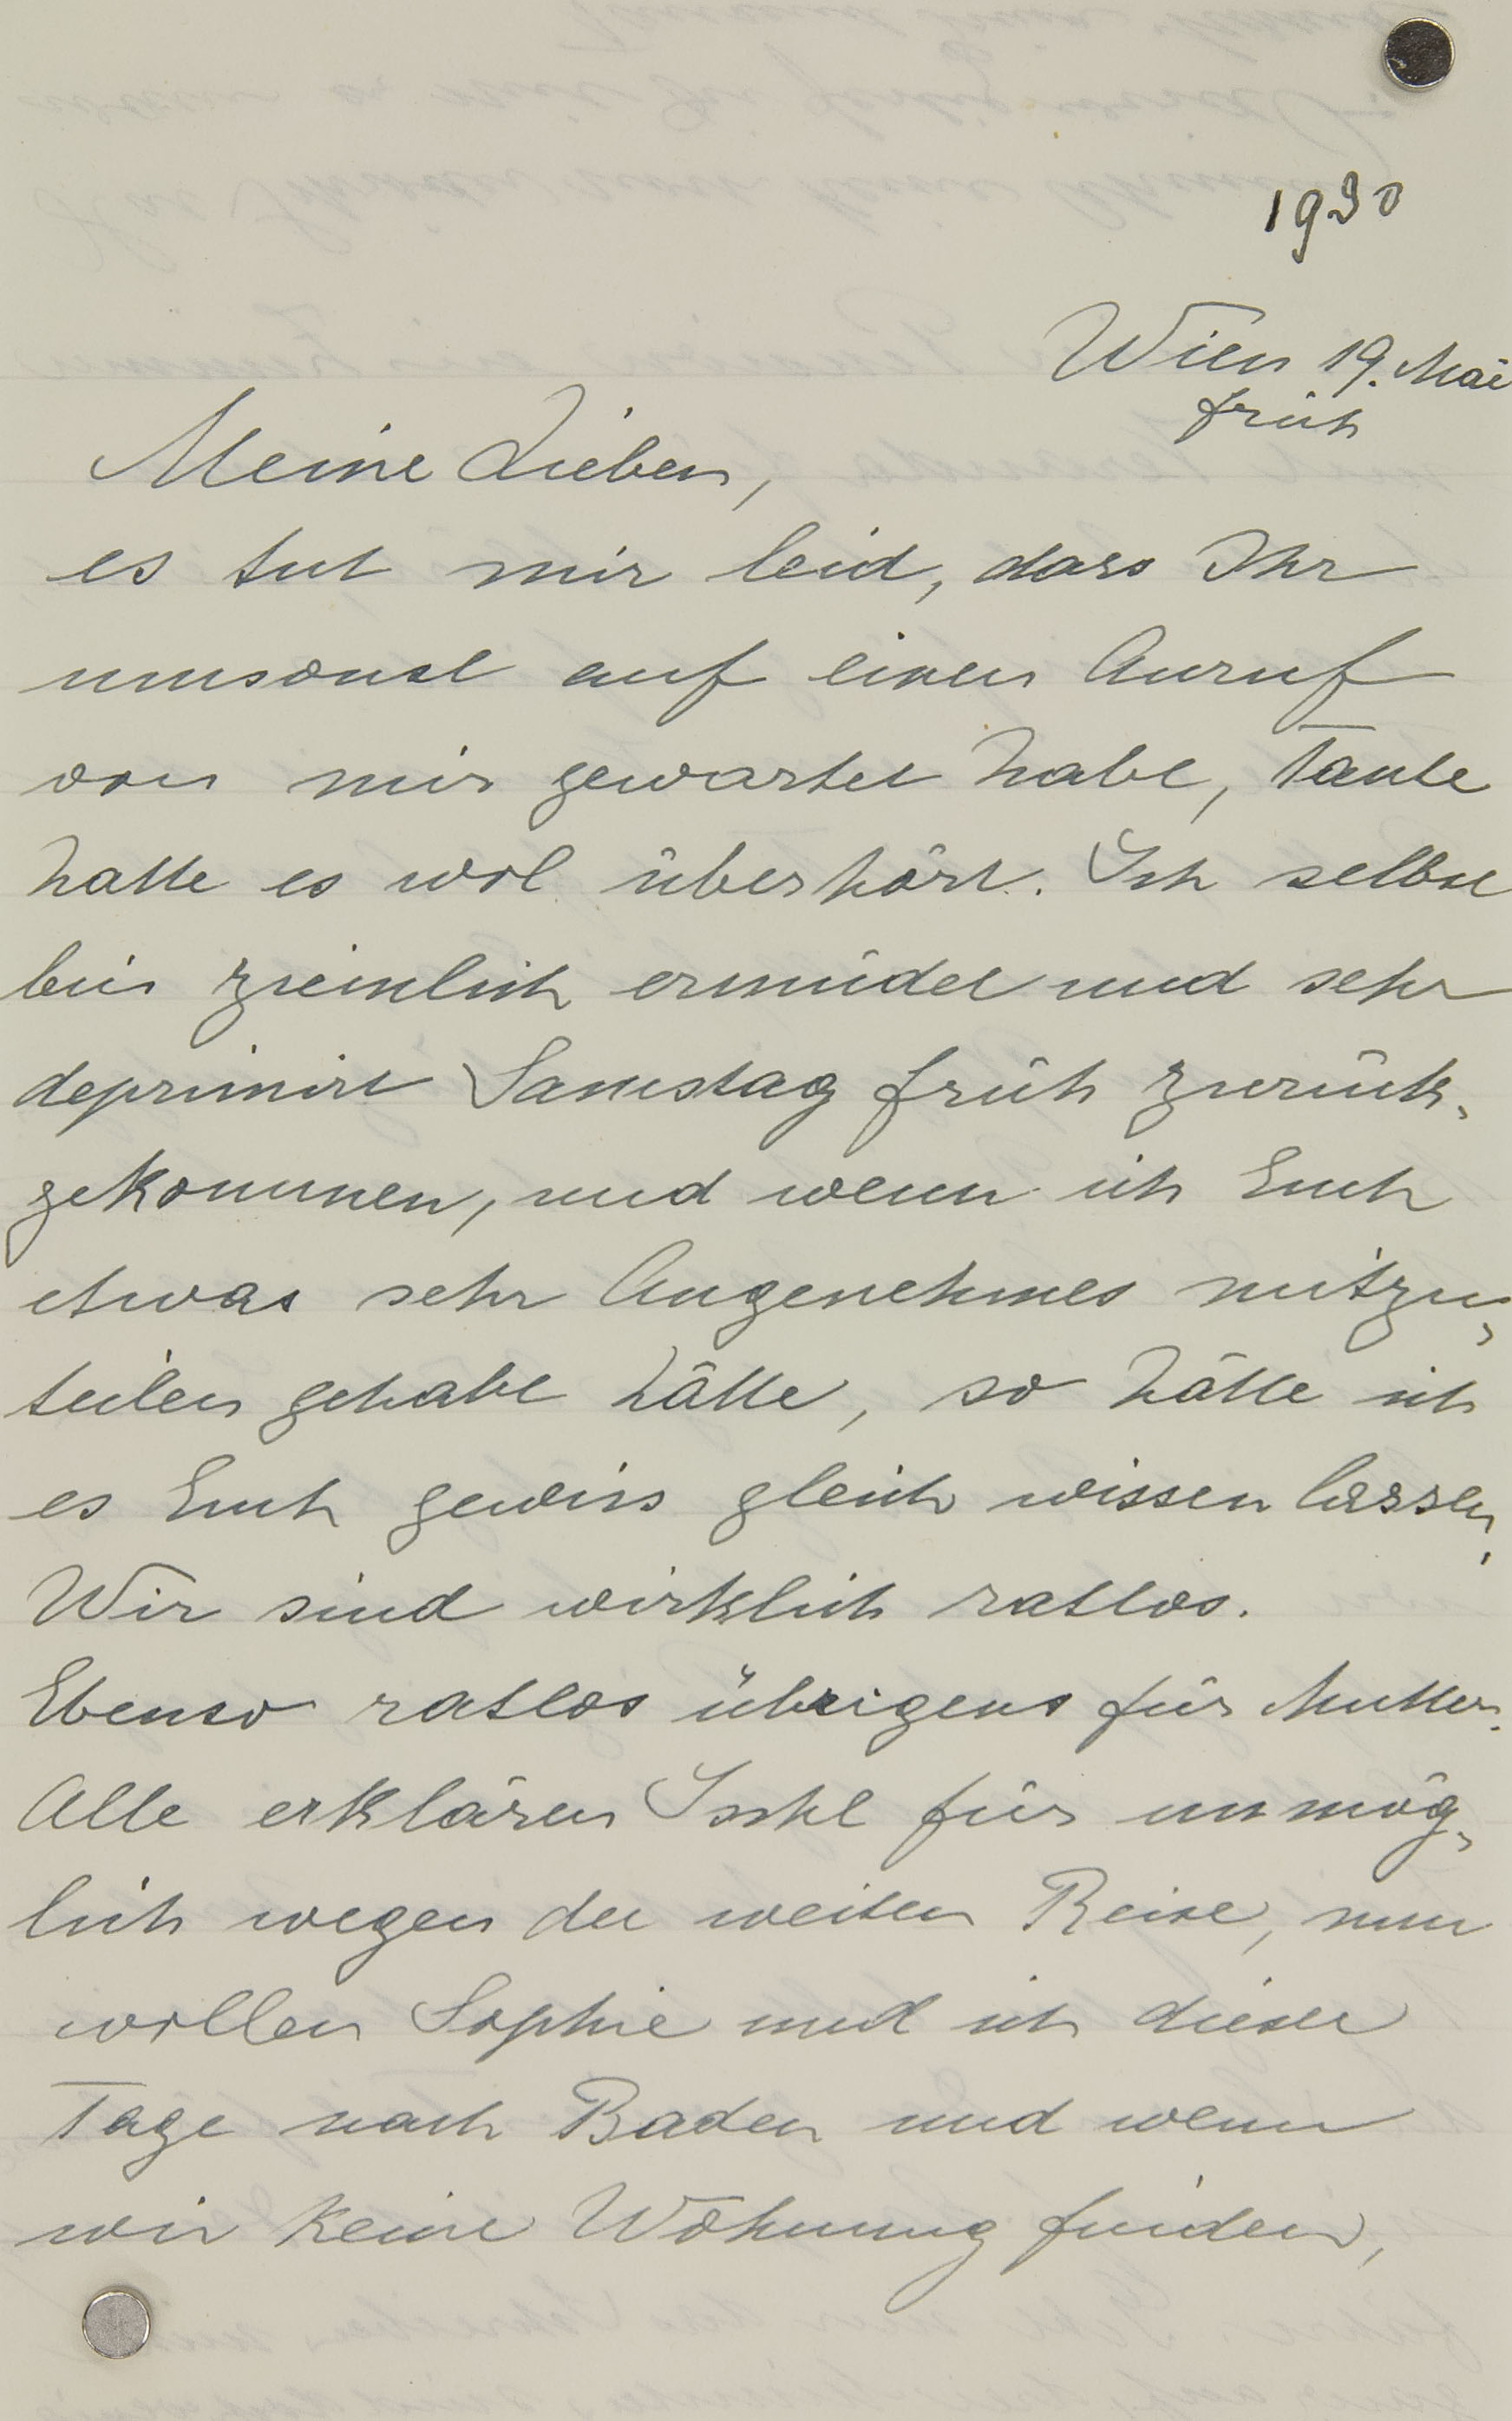 1930
Wien 19. Mai
früh
Meine Lieben,
es tut mir leid, dass Ihr
umsonst auf einen Anruf
von mir gewartet habt, Tante
hatte es wol überhört. Ich selbst
bin ziemlich ermüdet und sehr
deprimirt Samstag früh zurück-
gekommen, und wenn ich Euch
etwas sehr Angenehmes mitzu-
teilen gehabt hätte, so hätte ich
es Euch gewiss gleich wissen lassen,
Wir sind wirklich ratlos.
Ebenso ratlos übrigens für Mutter.
Alle erklären Ischl für unmög-
lich wegen der weiten Reise, nun
wollen Sophie und ich dieser
Tage nach Baden und wenn
wir keine Wohnung finden,